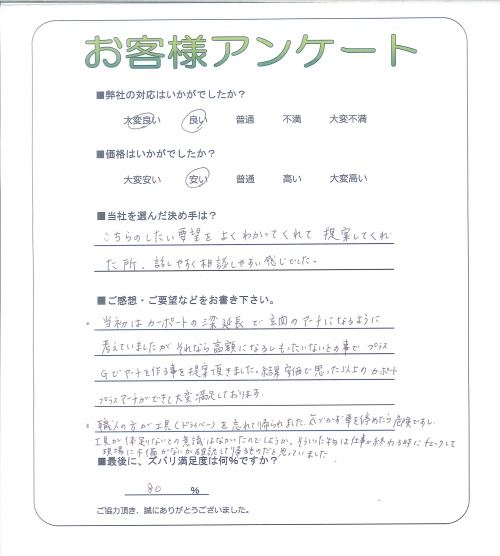 お客様アンケート
■弊社の対応はいかがでしたか？
大変良い 良い 普通 不満 大変不満
■価格はいかがでしたか？
大変安い 安い 普通 高い 大変高い
■当社を選んだ決め手は？
こちらのしたい要望をよくわかってくれて 提案してくれ
た所、話しやすく相談しやすい感じでした。
■ご感想・ご要望などをお書き下さい。
。当初はカーポートの梁延長で玄関のアーチになるように
考えていましたが それなら高額になるしもったいないとの事で プラス
Gでアーチを作る事を提案頂きました。結果安価で思った以上のカーポート
プラスアーチができて大変満足しております。
。職人の方が工具(ドライバー)を忘れて帰られました。気づかず車を停めたら危険ですし、
工具が1本足りないとの意識はなかったのでしょうか。そういった物は仕事が終わる時にチェックして
現場に不備がないか確認して帰るものだと思っていました。
■最後に、ズバリ満足度は何%ですか？
80 %
ご協力頂き、誠にありがとうございました。